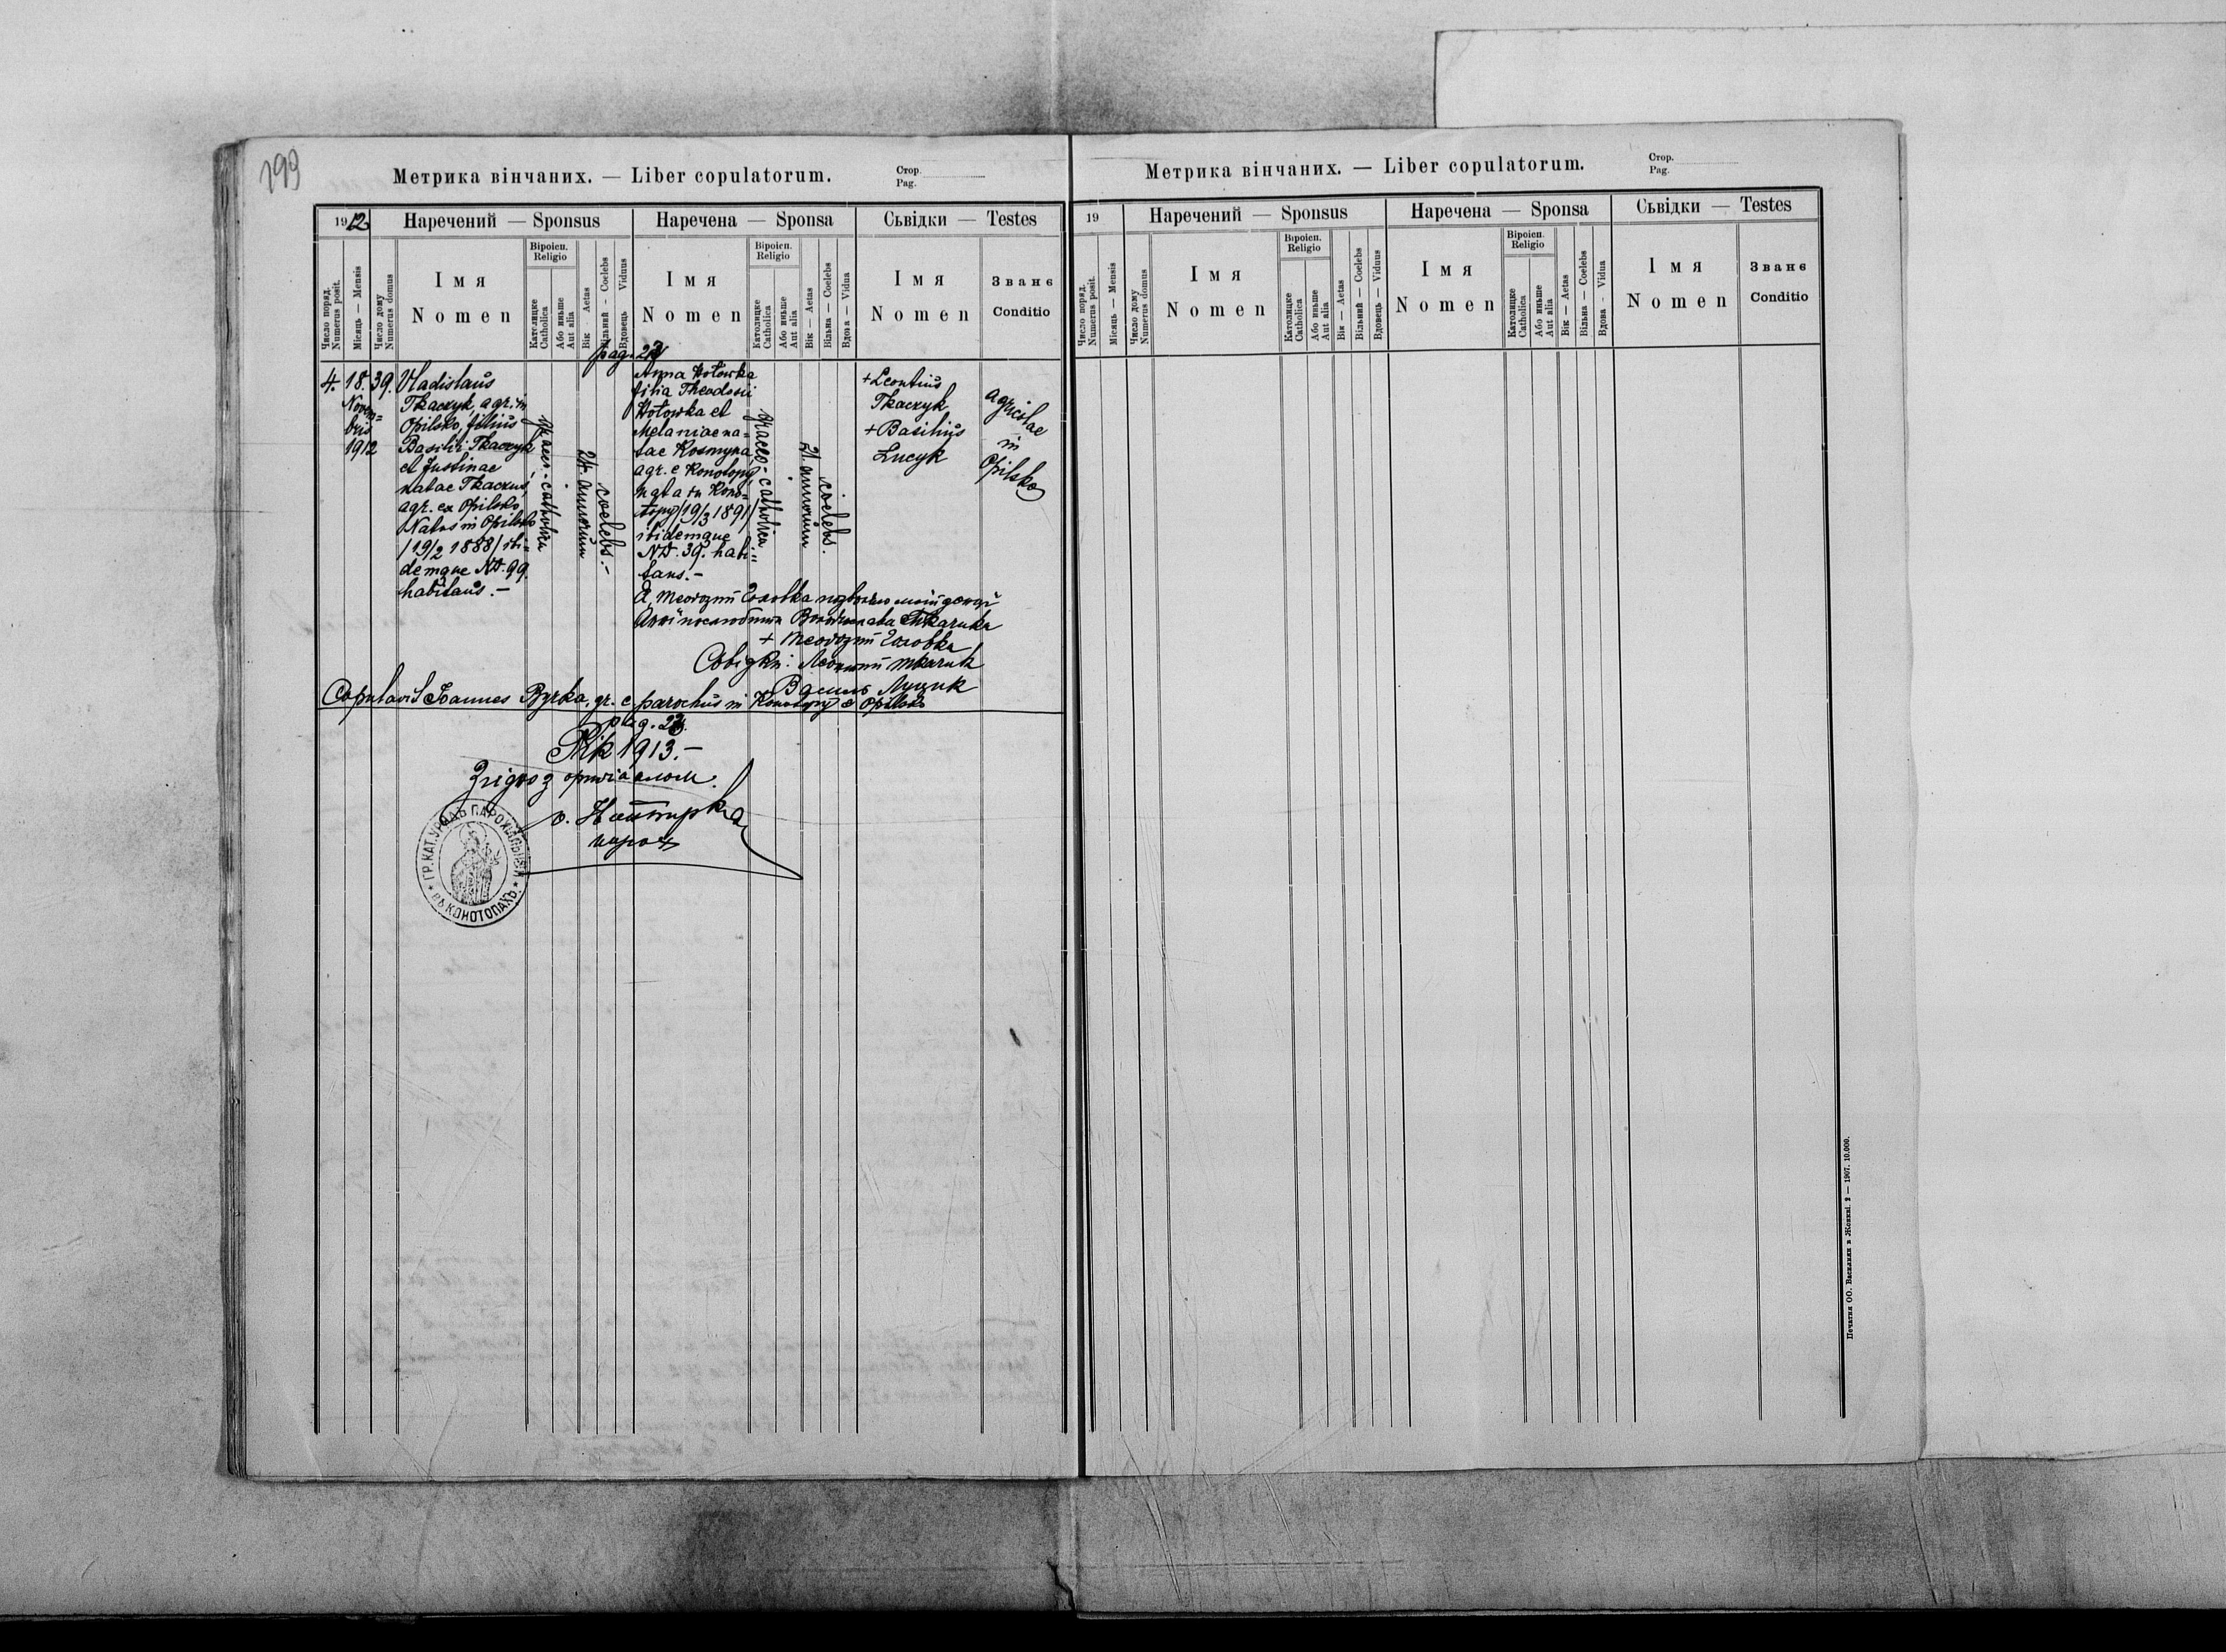 199
Метрика вінчаних. — Liber copulatorum.
Стор.
Pag.
1912
Наречений — Sponsus
Наречена — Sponsa
Сьвідки — Testes
Число поряд.
Numerus posit.
Місяць — Mensis
Число дому
Numerus domus
Імя
Nomen
Віроісп.
Religio
Католицке
Catholica
Або иньше
Aut alia
Вік — Aetas
Вільний — Coelebs
Вдовець — Viduus
Імя
Nomen
Віроісп.
Religio
Католицке
Catholica
Або иньше
Aut alia
Вік — Aetas
Вільна — Coelebs
Вдова — Vidua
Імя
Nomen
Званє
Conditio
pag. 23
4.
18.
Novem=
bris
1912
39.
Vladislaus
Tkaczyk, agr. in
Opilsko, filius
Basilii Tkaczyk
et Justinae
natae Tkaczuk,
agr. ex Opilsko
Natus in Opilsko
/19/2 1888/ ibi=
demque ND. 99.
habitans.—
graeco-catholica
24. annorum
coelebs.—
Anna Hołowka
filia Theodosii
Hołowka et
Melaniae na=
tae Kosmyna,
agr. e Konotopy,
nata in Kono=
topy /19/3 1891/
ibidemque
ND. 39. habi=
tans.—
graeco-catholica
21. annorum
coelebs.
+Leontius
Tkaczyk
+Basilius
Lucyk
agricolae
in
Opilsko
Я, Теодозий Головка позволяю моїй доньці
Анні пошлюбити Володислава Ткачика
+ Теодозий Головка
Сьвідки: Леонтий Ткачик
Василь Луцик
Copulavit Joannes Byrka, gr. c. parochus in Konotopy et Opilsko
pag. 23.
Рік 1913.—
Згідно з оригіналом.
о.
парох
ГР.КАТ.УРЯДЪ ПАРОХІАЛЬНЫЙ
ВЪ КОНОТОПАХЪ
Метрика вінчаних. — Liber copulatorum.
Стор.
Pag.
19
Наречений — Sponsus
Наречена — Sponsa
Сьвідки — Testes
Число поряд.
Numerus posit.
Місяць — Mensis
Число дому
Numerus domus
Імя
Nomen
Віроісп.
Religio
Католицке
Catholica
Або иньше
Aut alia
Вік — Aetas
Вільний — Coelebs
Вдовець — Viduus
Імя
Nomen
Віроісп.
Religio
Католицке
Catholica
Або иньше
Aut alia
Вік — Aetas
Вільна — Coelebs
Вдова - Vidua
Імя
Nomen
Званє
Conditio
Печатня ОО. Василиян в Жовкві. 2 — 1907. 10.000.